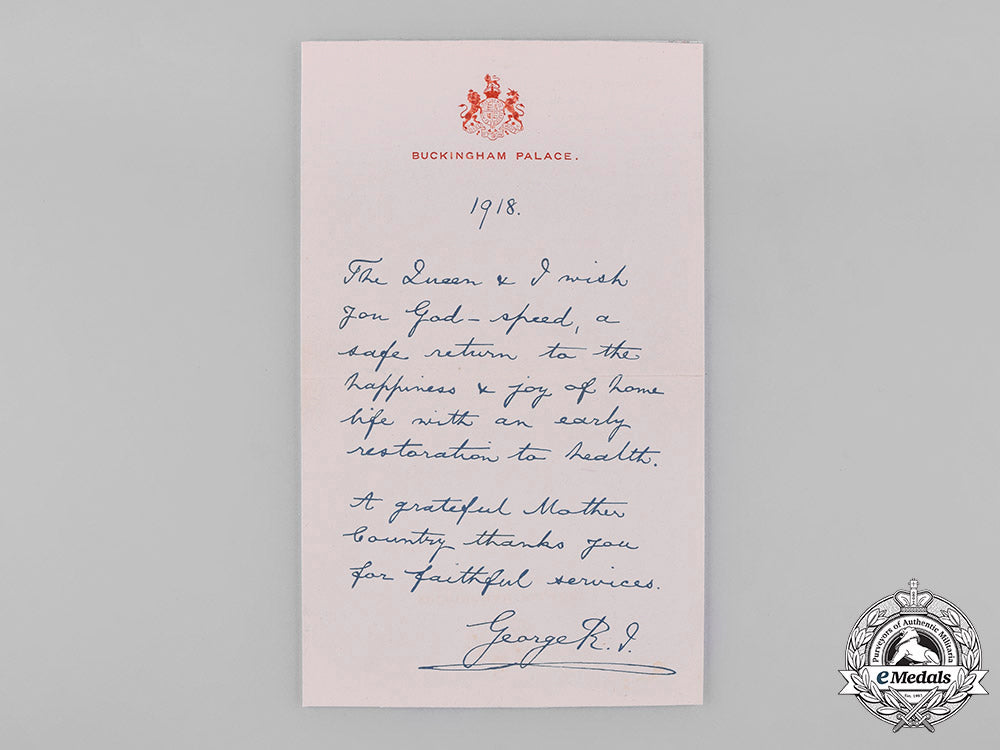 BUCKINGHAM PALACE.
1918.
The Queen & I wish
you God-speed, a
safe return to the
happiness & joy of home
life with an early
restoration to health.
A grateful Mother
Country thanks you
for faithful services.
George R. I.
Purveyors of Authentic Militaria
eMedals